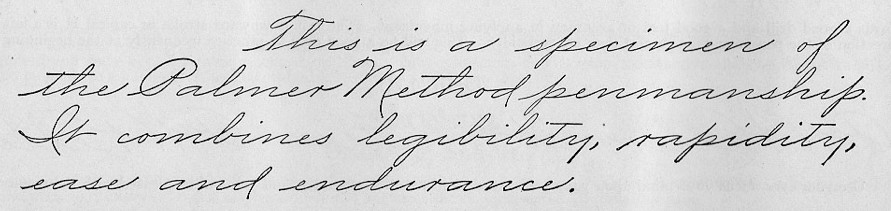 This is a specimen of
the Palmer Method penmanship.
It combines legibility, rapidity,
ease and endurance.